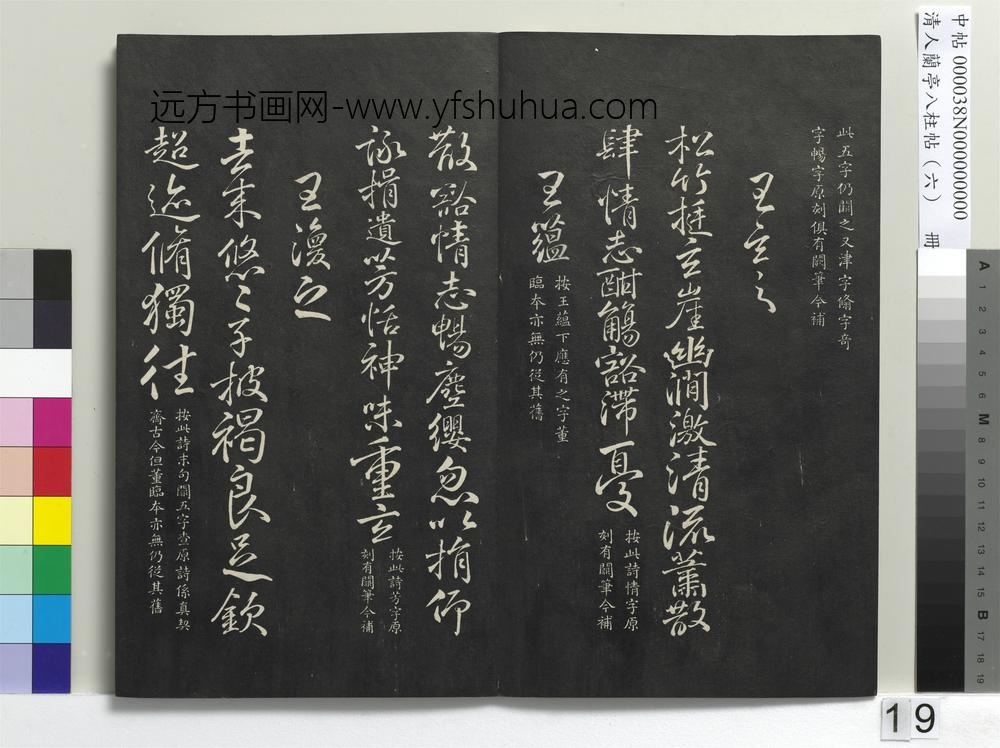 中帖 000038N000000000
清人蘭亭八柱帖（六） 冊
远方书画网-www.yfshuhua.com
此五字仍闕之又津字脩字奇
字暢字原刻俱有闕筆今補
王玄之
松竹挺玄崖幽澗激清流蕭散
肆情志酣觴豁滯憂
按此詩情字原
刻有闕筆今補
王蘊
按王蘊下應有之字董
臨本亦無仍從其舊
散豁情志暢塵纓忽以捐仰
詠挹遺芳怡神味重玄
按此詩芳字原
刻有闕筆今補
王渙之
去來悠〻子披褐良足欽
超迹脩獨往
按此詩末句闕五字查原詩係真契
齊古今但董臨本亦無仍從其舊
A 1 2 3 4 5 6 M 8 9 10 11 12 13 14 15 B 17 18 19
19